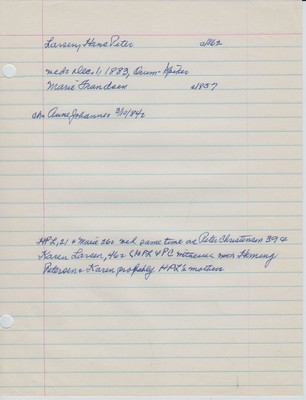 Larsen, Hans Peter c1862
md 2 Dec. 1, 1883, Drum-
Marie Frandsen c1857
chr Anne Johannes 3/11/84
HPL, 21 & Marie 26 md same time as Peter Christensen 39 &
Karen Larsen, 46. HPL & PC witnesses were Heming
Petersen & Karen probably HPL's mother